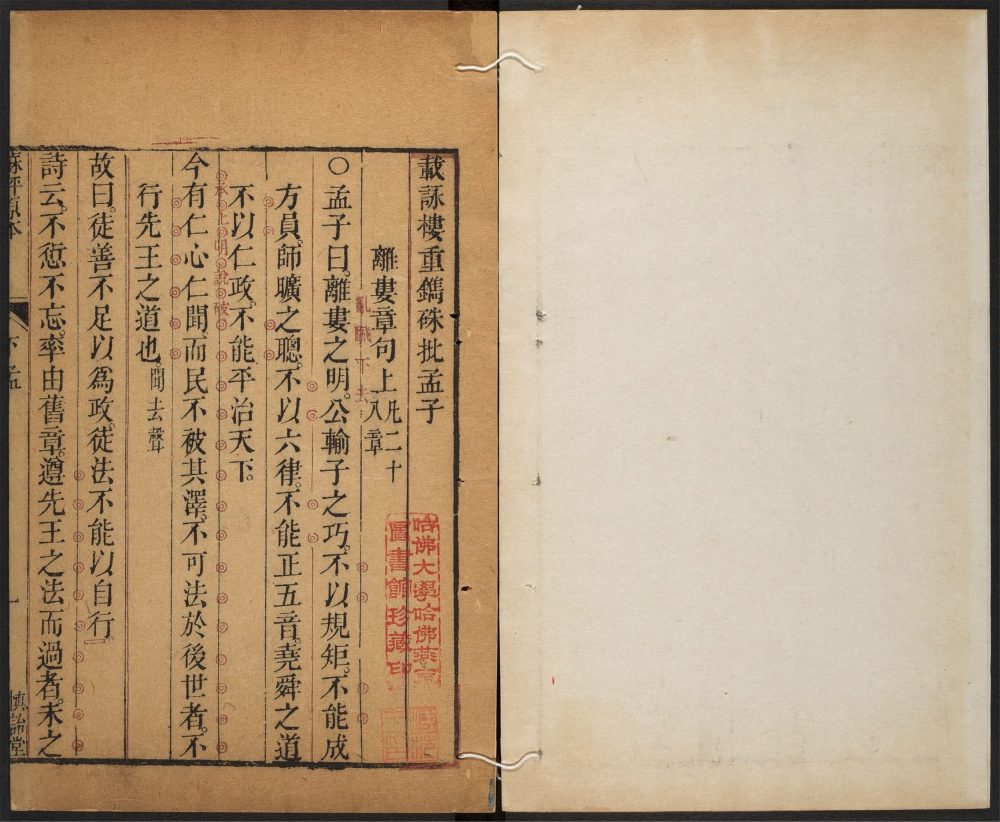 載詠樓重鐫硃批孟子
離婁章句上 凡二十八章
○孟子曰。離婁之明。公輸子之巧。不以規矩。不能成
方員。師曠之聰。不以六律。不能正五音。堯舜之道
不以仁政。不能平治天下。
今有仁心仁聞。而民不被其澤。不可法於後世者。不
行先王之道也。聞去聲
故曰。徒善不足以爲政。徒法不能以自行。
詩云。不愆不忘。率由舊章。遵先王之法而過者。未之
蘇評原本
下孟
一
慎詒堂
哈佛大學哈佛燕京
圖書館珍藏印